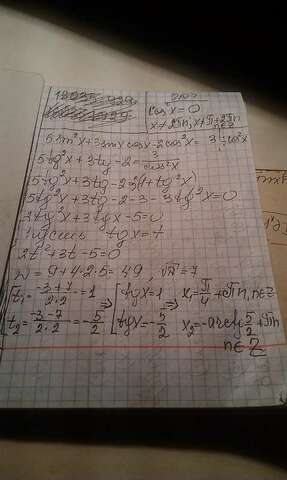 cos²x=0
n∈Z
5sin²x+3sinx cosx-2cos²x= 3 |:cos²x
5tg²x+3tg-2=3/cos²x
5tg²x+3tg-2=3(1+tg²x)
5tg²x+3tg-2-3-3tg²x=0
2tg²x+3tgx-5=0
Пусть tgx=t
2t²+3t-5=0
D=9+4·2·5=49, √D=7
[t₁=(-3+7)/(2·2)=1 [tgx=1 ⇒ x₁=π/4+πn, n∈Z
[t₂=(-3-7)/(2·2)=-5/2 [tgx=-5/2 x₂=-arctg 5/2+πn
n∈Z